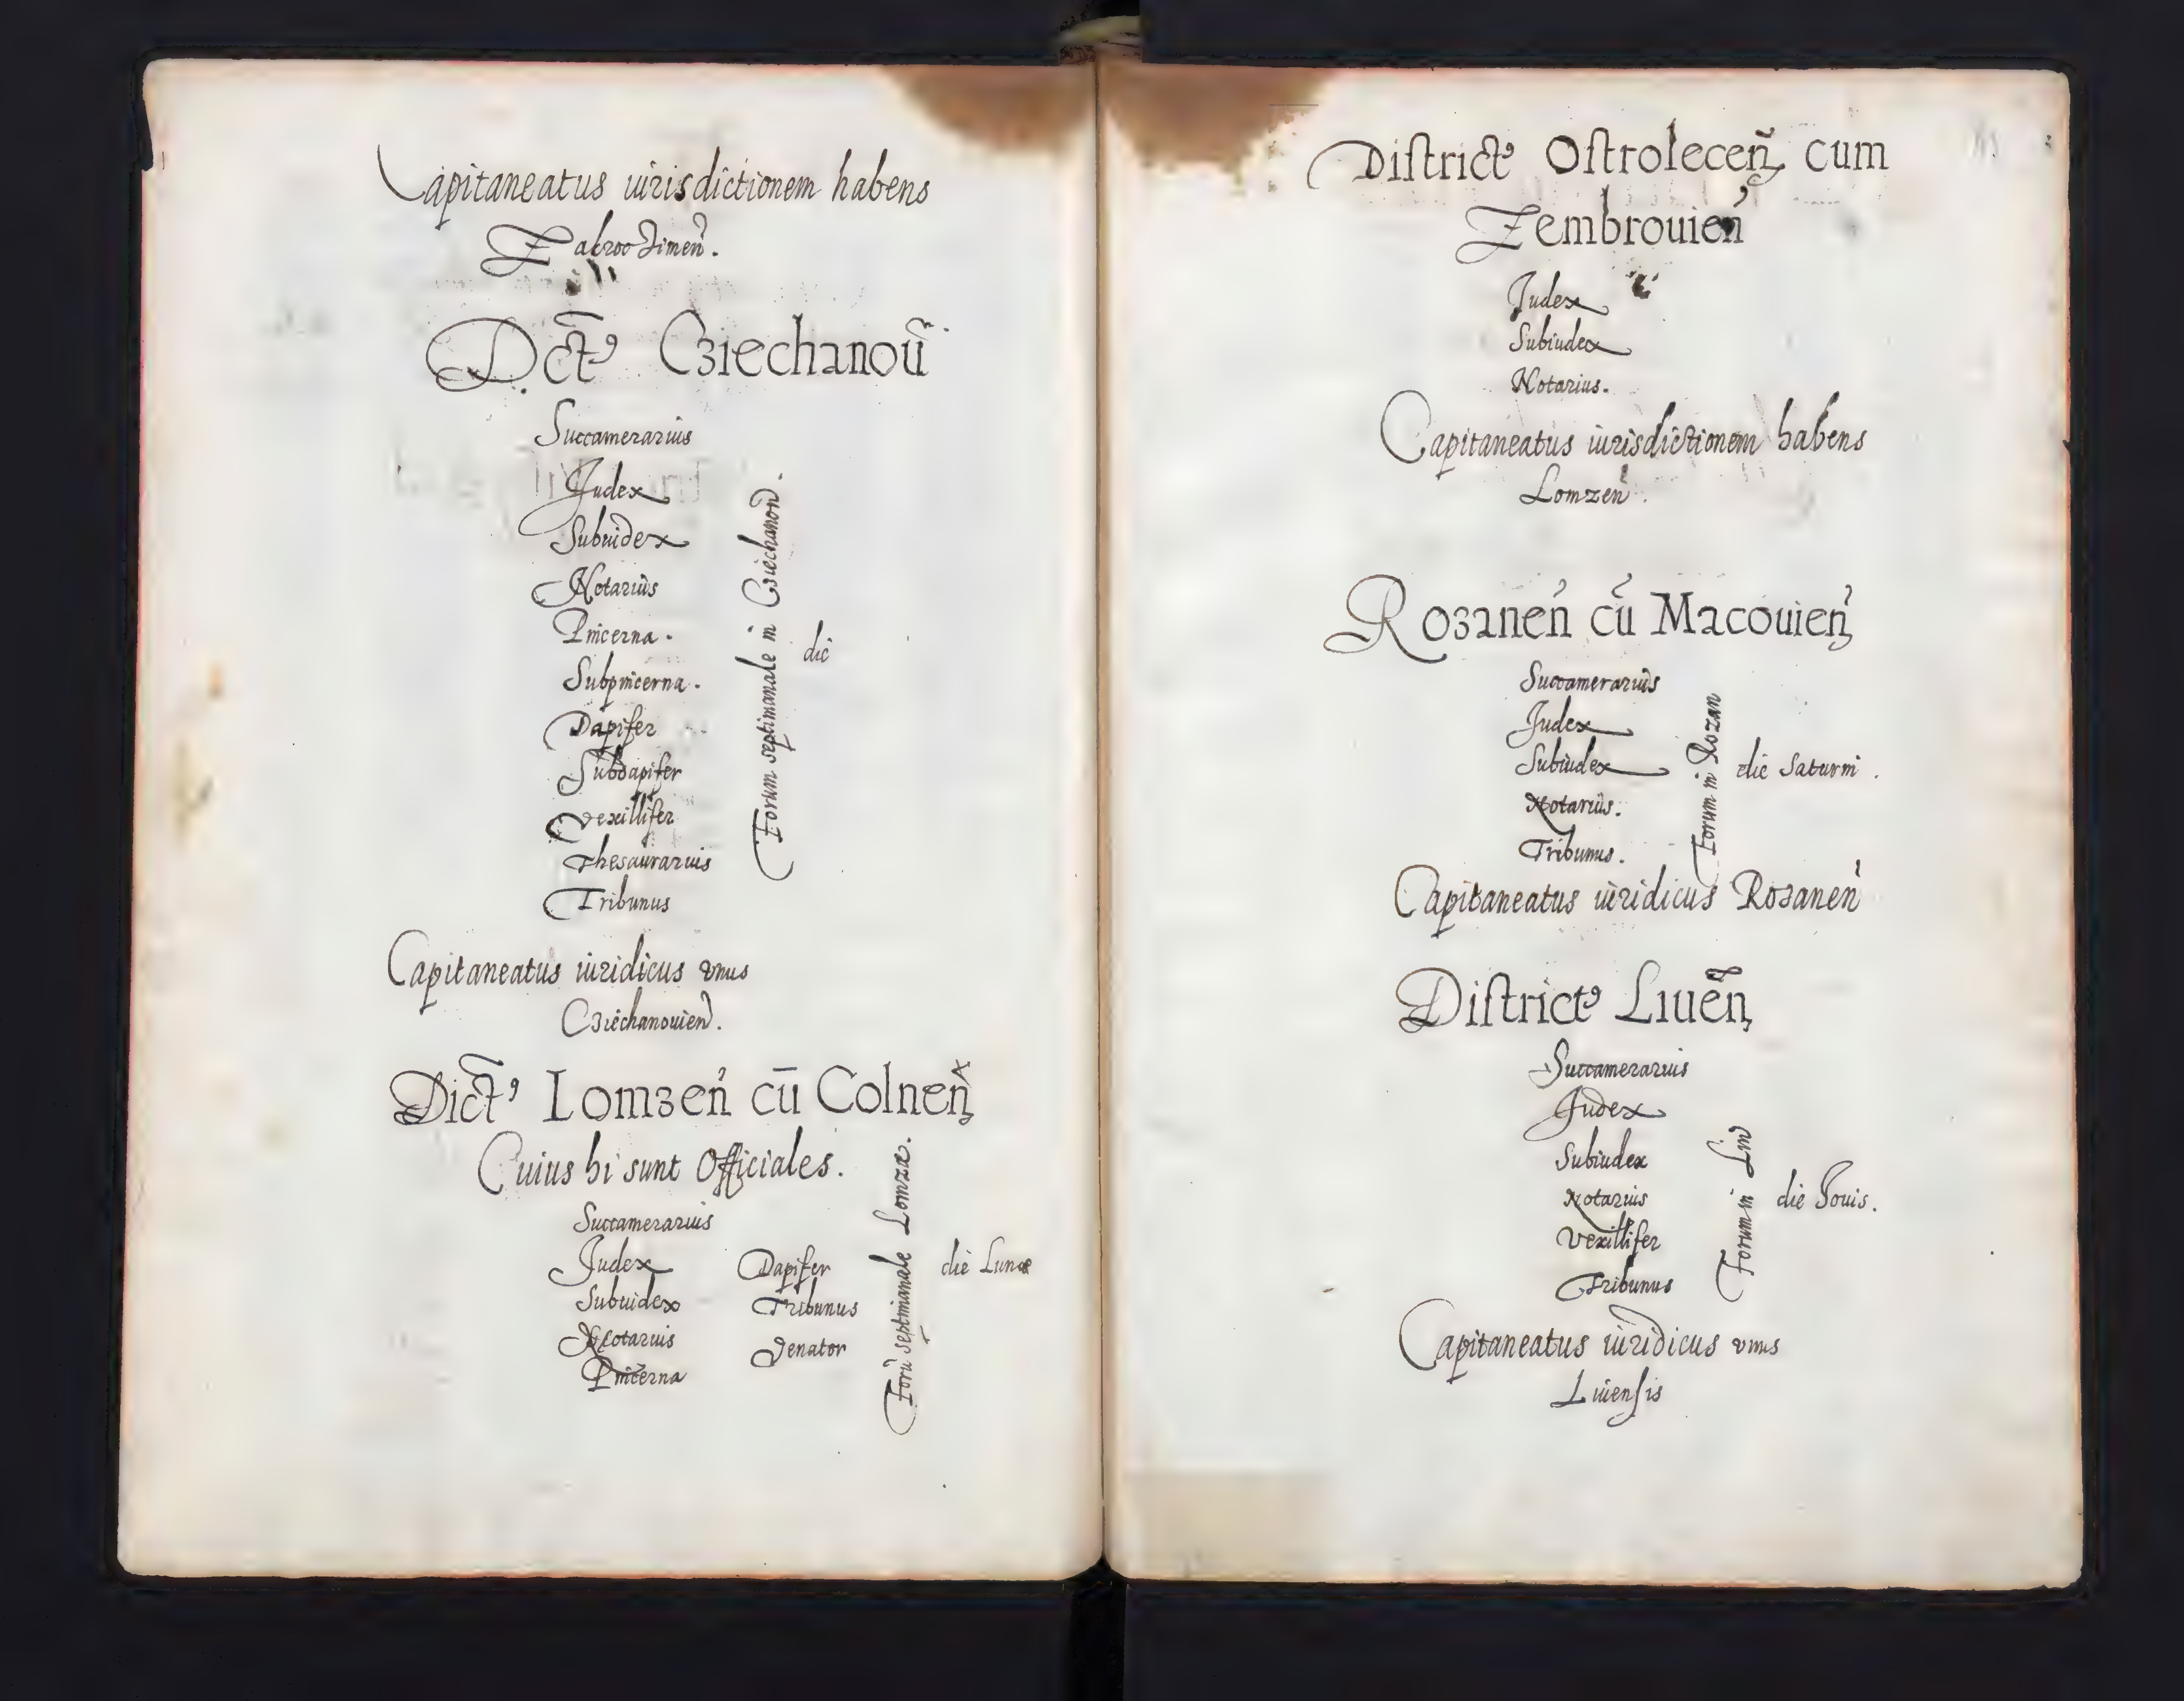 Capitaneatus iurisdictionem habens
Zakroczimeñ.
Dct9 Cziechanoũ.
Succamerarius
Judex
Subiudex
Notarius
Pincerna.
Subpincerna.
Dapifer
Subdapifer
Vexillifer
Thesaurarius
Tribunus
Forum septimanale in Cziechanoũ.
die
Capitaneatus iuridicus vnus
Cziechanouieñ.
Dict9 Lomzeñ cū Colneñ
Cuius hi sunt Officiales.
Succamerarius
Judex
Subiudex
Notarius
Pincerna
Dapifer
Tribunus
Venator
Forū septimanale Lomzæ.
die Lunæ
District9 Ostroleceñ cum
Zembrouieñ
Judex
Subiudex
Notarius.
Capitaneatus iurisdictionem habens
Lomzeñ.
Rozaneñ cū Macouieñ
Succamerarius
Judex
Subiudex
Notarius.
Tribunus.
Forum in Rozan
die Saturni.
Capitaneatus iuridicus Rozaneñ
District9 Liueñ
Succamerarius
Judex
Subiudex
Notarius
Vexillifer
Tribunus
Forum in Liu
die Jouis.
Capitaneatus iuridicus vnus
Liuensis